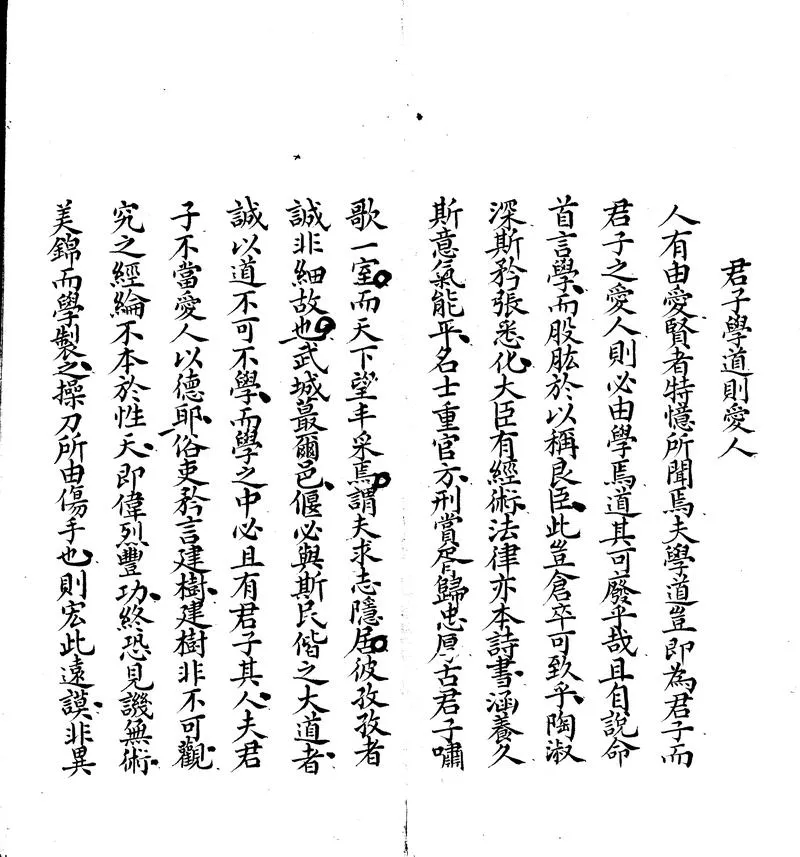 君子學道則愛人
人有由愛賢者特憶所聞焉夫學道豈即為君子而
君子之愛人則必由學焉道其可廢乎哉且自說命
首言學而股肱於以稱良臣此豈倉卒可致乎陶淑
深斯矜張悉化大臣有經術法律亦本詩書涵養久
斯意氣能平名士重官方刑賞胥歸忠厚古君子嘯
歌一室而天下望丰采焉謂夫求志隱居彼孜孜者
誠非細故也武城蕞爾邑偃必與斯民偕之大道者
誠以道不可不學而學之中必且有君子其人夫君
子不當愛人以德耶俗吏矜言建樹建樹非不可觀
究之經綸不本於性天即偉烈豐功終恐見譏無術
美錦而學製之操刀所由傷手也則宏此遠謨非異